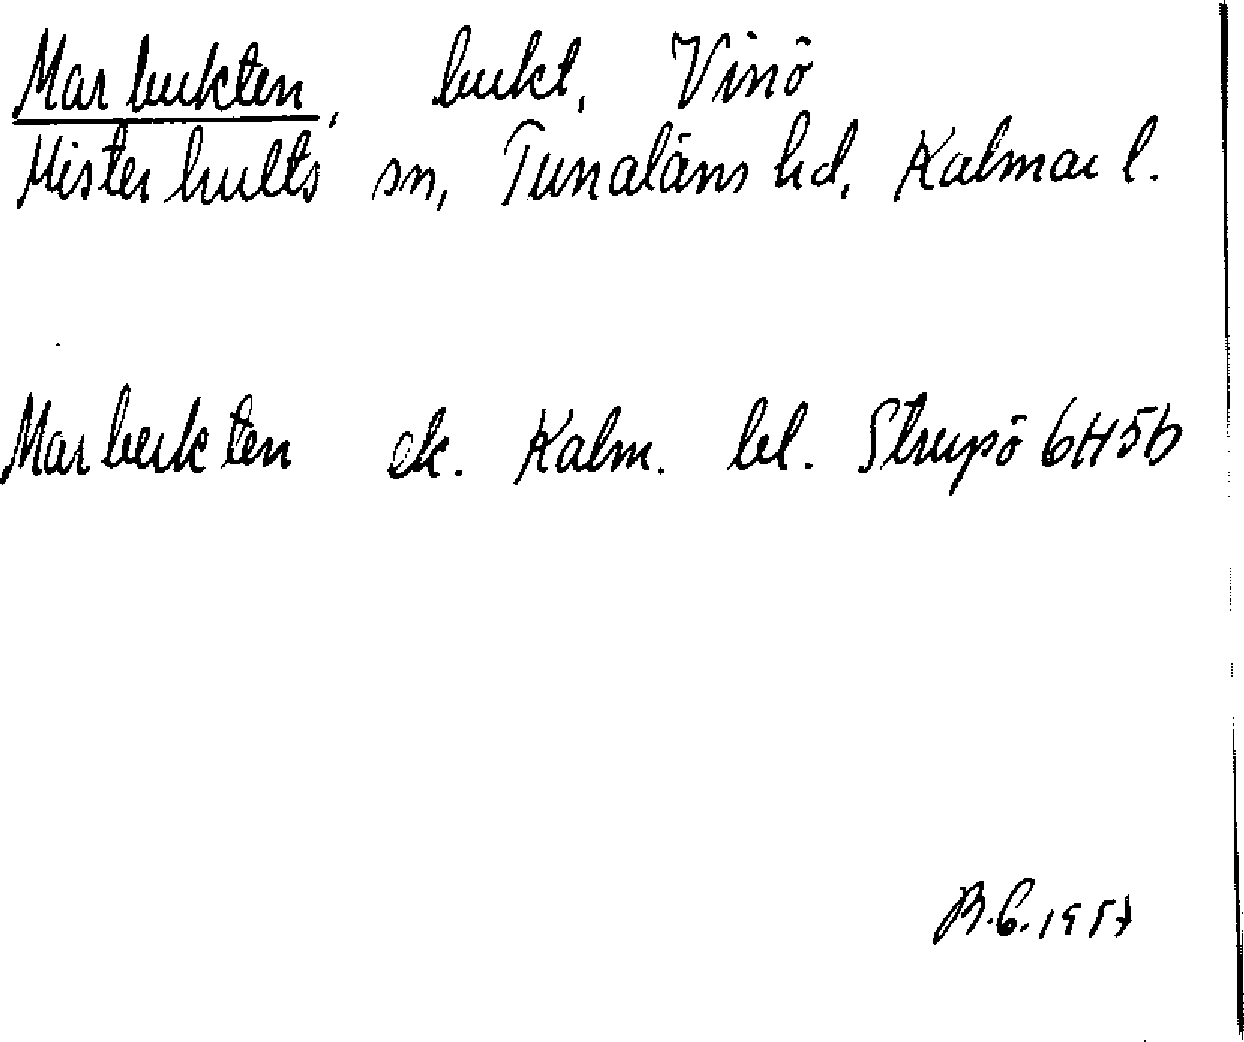 Marbukten, bukt, Vinö
Misterhults sn, Tunaläns hd, Kalmar l.
Marbukten ek. Kalm. bl. Strupö 6H5b
B.G. 1957